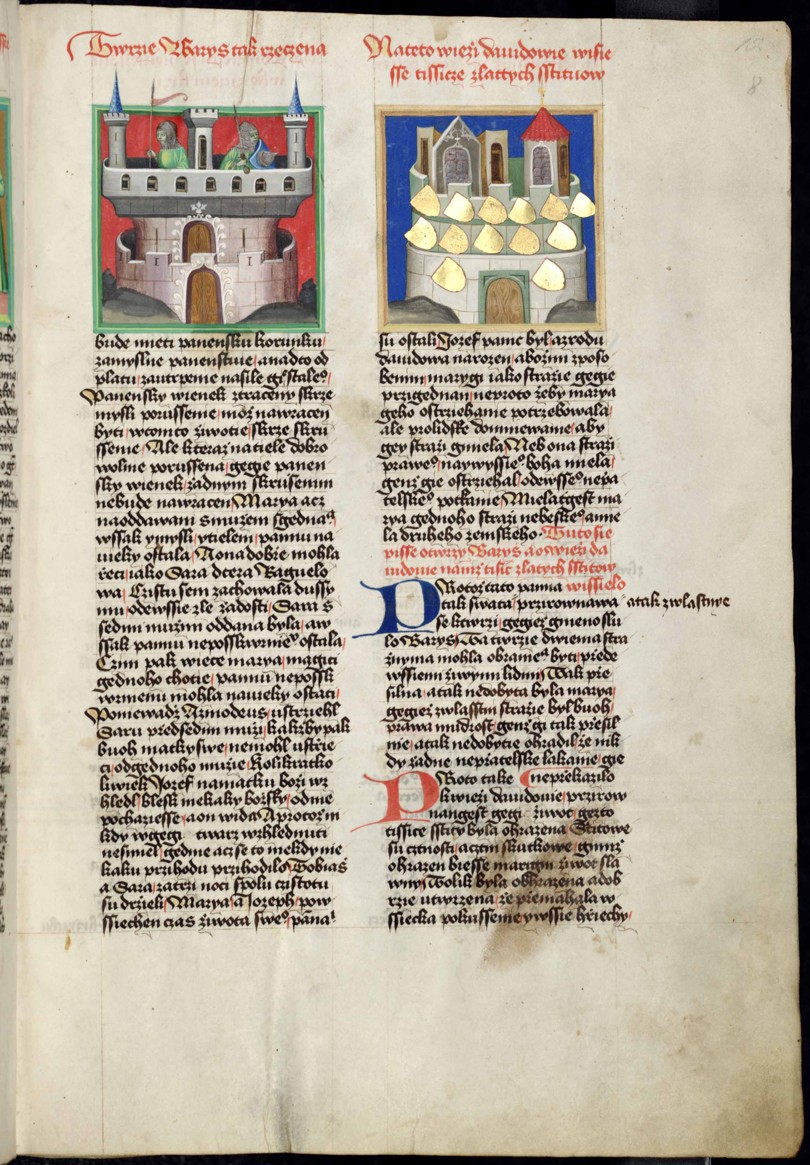 Twrzie Warys tak rzeczena
bude mieti panensku korunku
zamyslne panenstwie a nadto od
platu za utrpenie nasile
Panensky wienek ztraceny skrze
mysli porussenie moz nawracen
byti w tomto ziwotie skrze skru
ssenie Ale kteraz na tiele dobro
wolnie porussena gegie panen
sky wienek zadnym skrusenim
nebude nawracen Marya acz
na oddawani s muzem
wssak y mysli y tielem pannu na
wieky ostala A ona dobrze mohla
rzeci iako Sara dcera Raguelo
wa Cristu sem zachowala dussy
mu ode wssie zle zadosti Sara s
sedmi muzmi oddana byla a w
ssak pannu neposskwrnienu ostala
Czim pak wiece marya magici
gednoho chotie pannu nepossk
wrnienu mohla na wieky ostati
Poniewadz Azmodeus ustrziehl
Saru przed sedmi muzi kak by pak
buoh matky swe nemohl ustrzie
ci od gednoho muzie Kolikratko
liwiek Jozef na matku bozi wz
hledl blesk niekaky bozsky od nie
pochazesse a on wida A protoz ni
kdy w gegi twarz wzhlednuti
nesmiel gedine acz se to niekdy nie
kaku przihodu przihodilo Tobias
a Sara za trzi noci spolu czistotu
su drzieli Marya a Joseph po w
ssiechen czas ziwota sweho
Na teto wiezi dauidowie wisie
sse tissicze zlattych sstituow
su ostali Jozef panic byl a z rodu
dauidowa narozen a bozim zpuoso
benim marygi iako straze gegie
przigednan ne proto zeby marya
geho ostrziehanie potrzebowala
ale pro lidske domniewanie aby
gey strazi gmiela Neb ona strazi
praweho naywyssieho boha miela
genz gie ostrziehal ode wsseho neprza
telskeho potkanie Miela gest ma
rya gednoho strazi nebeskeho a mie
la druheho zemskeho Tuto sie
pisse o twrzy Warys a o wiezi da
uidowie na niz tisic zlatych sstitow
Protoz tato panna wissielo
tak swata przirownawa a tak zwlastnye
se k twrzi gegiez gmeno slu
lo Warys Ta twrzie dwiema stra
znyma mohla obraniena byti przede
wssiemi ziwymi lidmi Tak prze
silna a tak nedobyta byla marya
gegiez zwlasstni strazie byl buoh
prawa mudrost genz gi tak przesil
nie a tak nedobytie ohradil ze nik
dy zadne neprzatelske lakanie gie
Proto take neprzekazilo
k wiezi dauidowie przirow
nana gest gegi ziwot gezto
tissice sstity byla ohrazena Sstitowe
su cztnosti a cztni skutkowe gimiz
ohrazen biesse marygin ziwot sla
wny Tolik byla obhrazena a dob
rzie utwrzena ze przemahala w
ssiecka pokussenie y wssie hrziechy